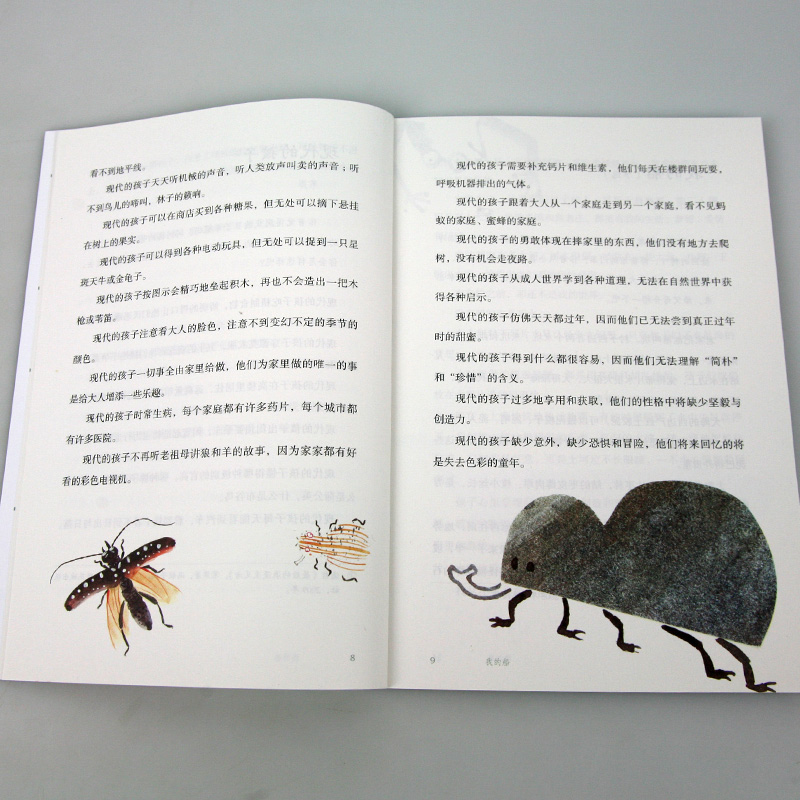 看不到地平线。
现代的孩子天天听机械的声音，听人类放声叫卖的声音；听
不到鸟儿的啼叫，林子的籁响。
现代的孩子可以在商店买到各种糖果，但无处可以摘下悬挂
在树上的果实。
现代的孩子可以得到各种电动玩具，但无处可以捉到一只星
斑天牛或金龟子。
现代的孩子按图示会精巧地垒起积木，再也不会造出一把木
枪或苇笛。
现代的孩子注意看大人的脸色，注意不到变幻不定的季节的
颜色。
现代的孩子一切事全由家里给做，他们为家里做的唯一的事
是给大人增添一些乐趣。
现代的孩子时常生病，每个家庭都有许多药片，每个城市都
有许多医院。
现代的孩子不再听老祖母讲狼和羊的故事，因为家家都有好
看的彩色电视机。
8
现代的孩子需要补充钙片和维生素，他们每天在楼群间玩耍，
呼吸机器排出的气体。
现代的孩子跟着大人从一个家庭走到另一个家庭，看不见蚂
蚁的家庭、蜜蜂的家庭。
现代的孩子的勇敢体现在摔家里的东西，他们没有地方去爬
树，没有机会走夜路。
现代的孩子从成人世界学到各种道理，无法在自然世界中获
得各种启示。
现代的孩子仿佛天天都过年，因而他们已无法尝到真正过年
时的甜蜜。
现代的孩子得到什么都很容易，因而他们无法理解“简朴”
和“珍惜”的含义。
现代的孩子过多地享用和获取，他们的性格中将缺少坚毅与
创造力。
现代的孩子缺少意外，缺少恐惧和冒险，他们将来回忆的将
是失去色彩的童年。
9